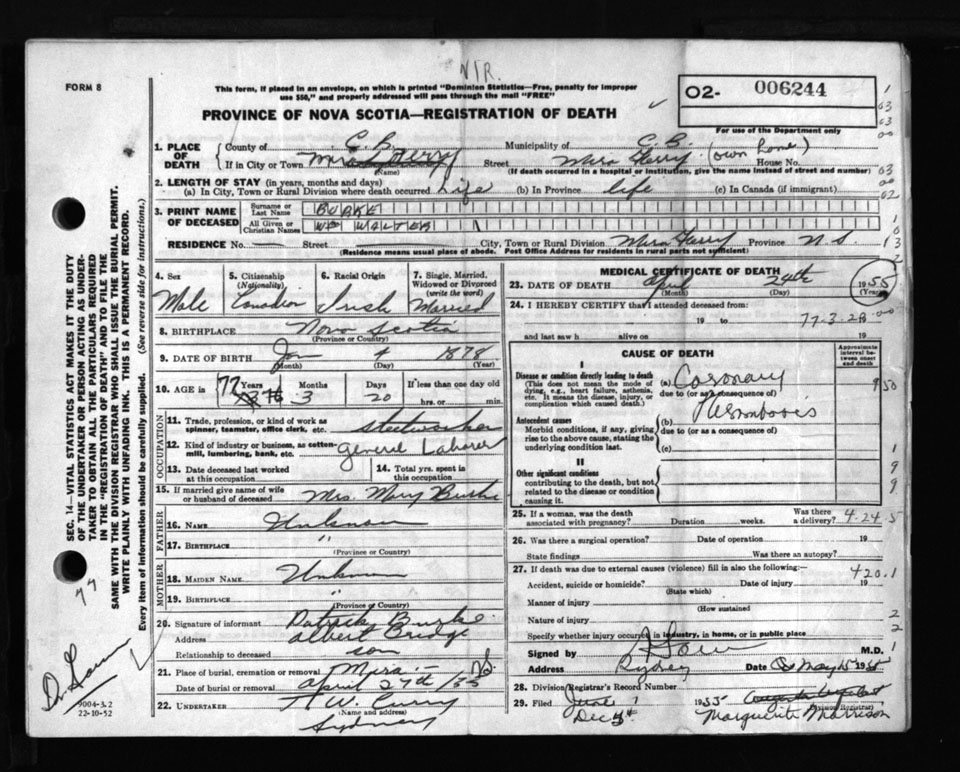 N/R.
FORM 8
This form, if placed in an envelope, on which is printed "Dominion Statistics—Free, penalty for improper
use $50," and properly addressed will pass through the mail "FREE"
02- 006244
PROVINCE OF NOVA SCOTIA—REGISTRATION OF DEATH
For use of the Department only
1. PLACE OF DEATH
County of C. B. Municipality of C. B.
If in City or Town Mira Ferry Street Mira Ferry (own home) House No.
(Name) (If death occurred in a hospital or institution, give the name instead of street and number)
2. LENGTH OF STAY (in years, months and days)
(a) In City, Town or Rural Division where death occurred Life (b) In Province life (c) In Canada (if immigrant)
3. PRINT NAME OF DECEASED
Surname or Last Name BURKE
All Given or Christian Names WM WALTER
RESIDENCE No. — Street — City, Town or Rural Division Mira Ferry Province N.S.
(Residence means usual place of abode. Post Office address for residents in rural parts not sufficient)
4. Sex Male
5. Citizenship (Nationality) Canadian
6. Racial Origin Irish
7. Single, Married, Widowed or Divorced (write the word) Married
8. BIRTHPLACE Nova Scotia
(Province or Country)
9. DATE OF BIRTH Jan 4 1878
(Month) (Day) (Year)
10. AGE in 77 Years 3 Months 20 Days If less than one day old
hrs. or min.
OCCUPATION
11. Trade, profession, or kind of work as spinner, teamster, office clerk, etc. steelworker
12. Kind of industry or business, as cotten-mill, lumbering, bank, etc. general Laborer
13. Date deceased last worked at this occupation
14. Total yrs. spent in this occupation
15. If married give name of wife or husband of deceased Mrs. Mary Burke
FATHER
16. NAME Unknown
17. BIRTHPLACE "
(Province or Country)
MOTHER
18. MAIDEN NAME Unknown
19. BIRTHPLACE "
(Province or Country)
20. Signature of informant Patrick Burke
Address Albert Bridge
Relationship to deceased son
21. Place of burial, cremation or removal Mira — N.S.
Date of burial or removal April 27th /55
22. UNDERTAKER W. Curry
(Name and address)
Sydney
MEDICAL CERTIFICATE OF DEATH
23. DATE OF DEATH April 24th 1955
(Month) (Day) (Year)
24. I HEREBY CERTIFY that I attended deceased from:
19 to 77-3-28-00
and last saw h alive on 19
CAUSE OF DEATH
Approximate interval between onset and death
I
Disease or condition directly leading to death (a) Coronary
(This does not mean the mode of dying, e.g., heart failure, asthenia, etc. It means the disease, injury, or complication which caused death.)
due to (or as a consequence of) Thrombosis
Antecedent causes
Morbid conditions, if any, giving rise to the above cause, stating the underlying condition last.
(b)
due to (or as a consequence of)
(c)
II
Other significant conditions
contributing to the death, but not related to the disease or condition causing it.
25. If a woman, was the death associated with pregnancy? Duration weeks. Was there a delivery? 4-24-5
26. Was there a surgical operation? Date of operation 19
State findings Was there an autopsy?
27. If death was due to external causes (violence) fill in also the following:—
420.1
Accident, suicide or homicide? Date of injury 19
(State which)
Manner of injury
(How sustained
Nature of injury
Specify whether injury occurred in industry, in home, or in public place
Signed by M.D.
Address Sydney Date May 15 1955
28. Division Registrar's Record Number
29. Filed June 1 1955
Dec 5th Marguerite Morrison
(Division Registrar)
SEC. 14—VITAL STATISTICS ACT MAKES IT THE DUTY
OF THE UNDERTAKER OR PERSON ACTING AS UNDER-
TAKER TO OBTAIN ALL THE PARTICULARS REQUIRED
IN THE "REGISTRATION OF DEATH" AND TO FILE THE
SAME WITH THE DIVISION REGISTRAR WHO SHALL ISSUE THE BURIAL PERMIT.
WRITE PLAINLY WITH UNFADING INK. THIS IS A PERMANENT RECORD.
Every item of information should be carefully supplied. (See reverse side for instructions.)
77
9004-3.2
22-10-52